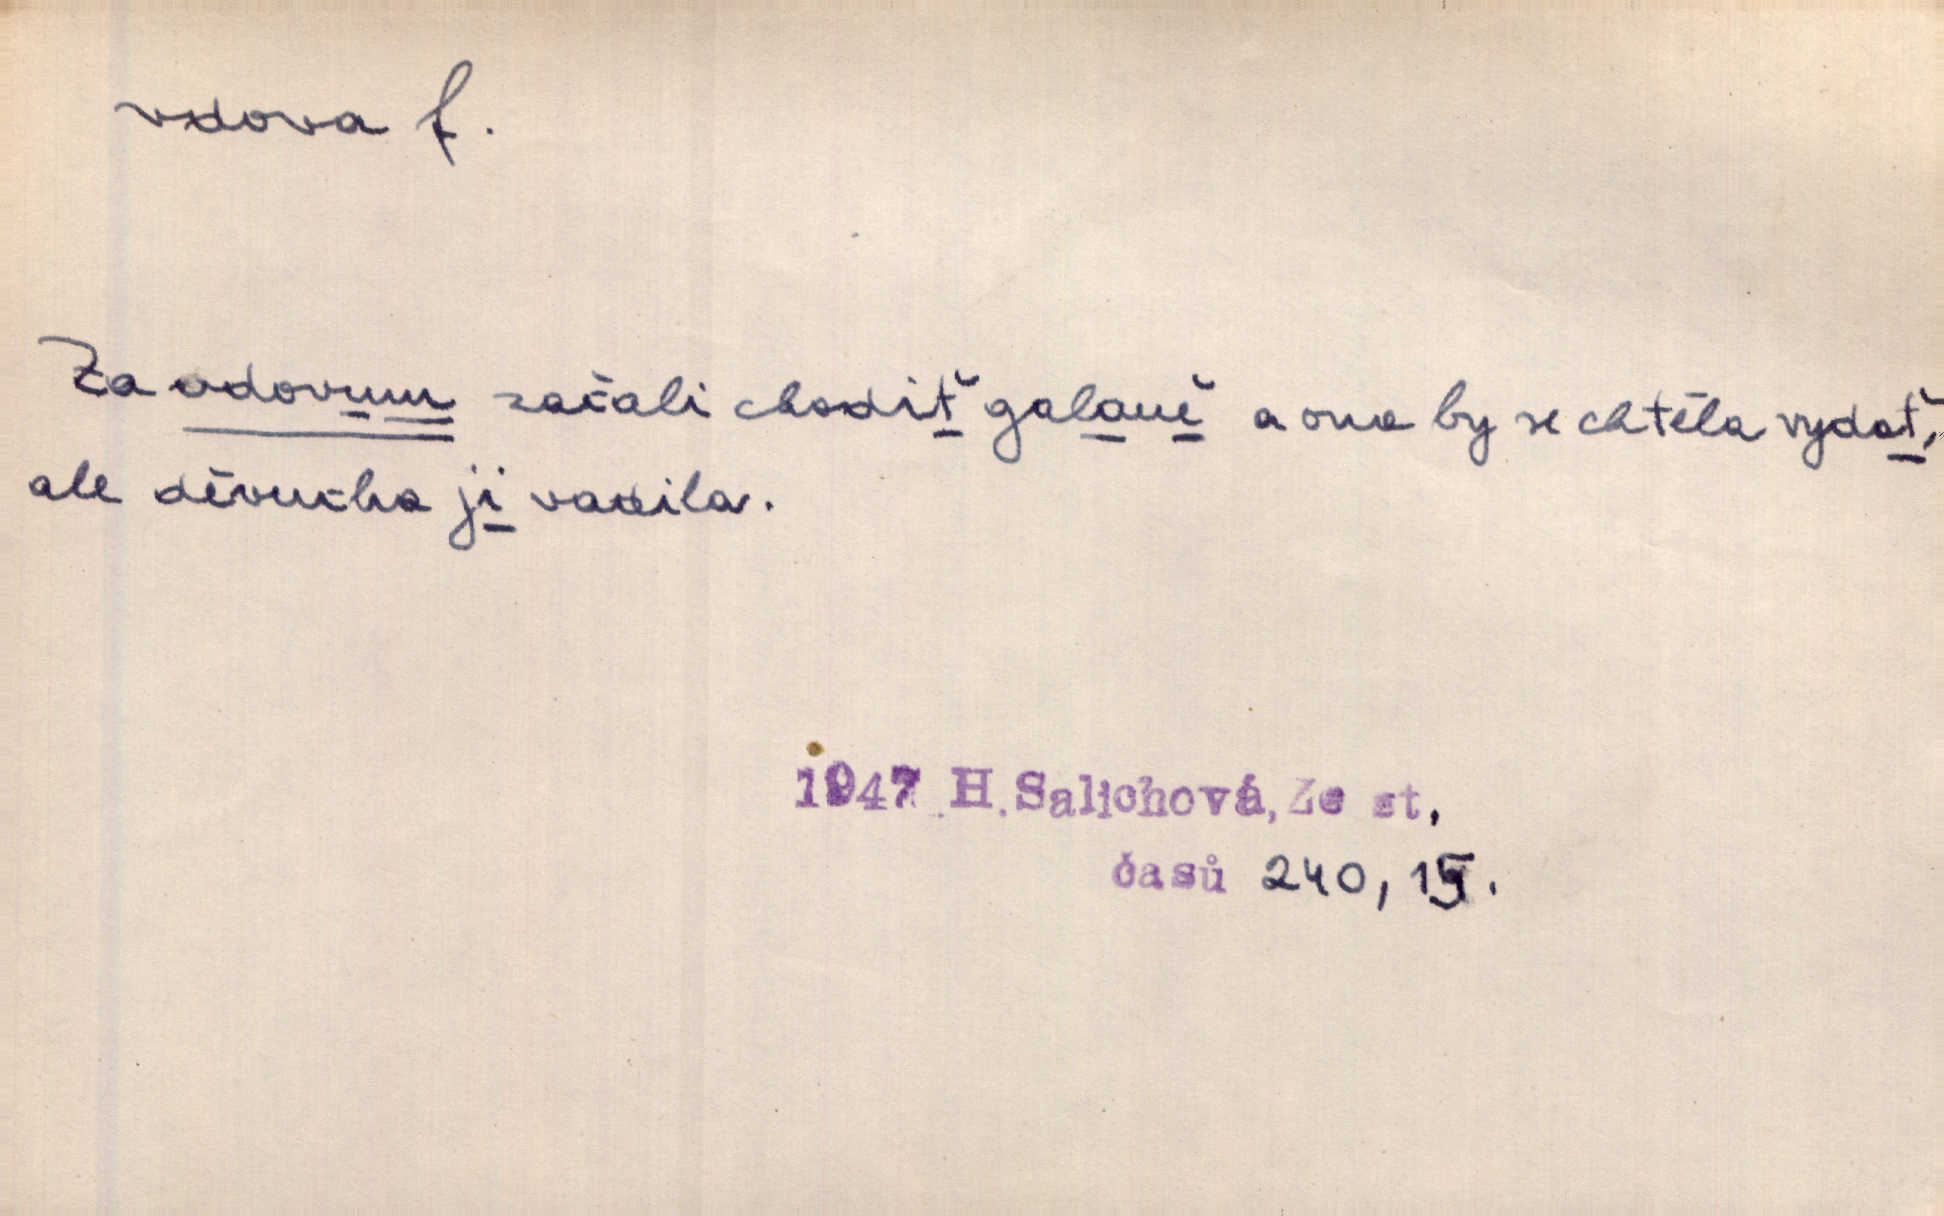 vdova f.
Za vdovum začali chodiť galaně a ona by se chtěla vydať,
ale děvucha ji vadila.
1947 H. Salichová, Ze st.
časů 240, 15.